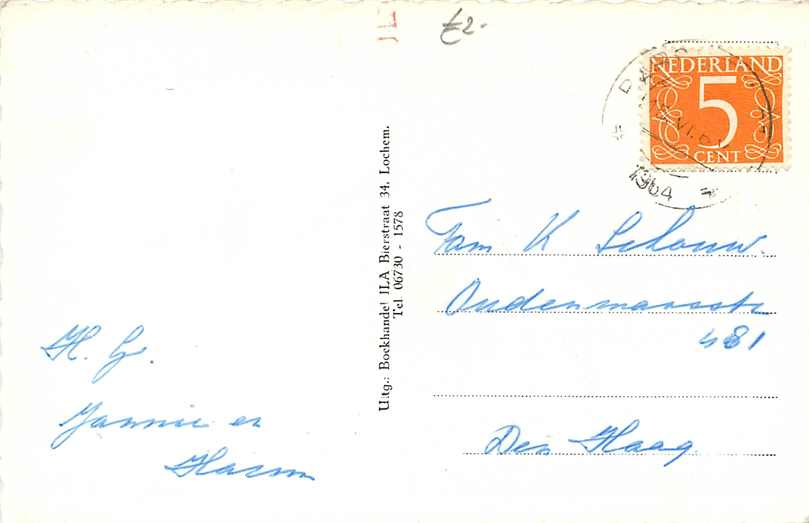 £2-
NEDERLAND
5
CENT
1964
H. G.
Jannie en
Harm
Uitg.: Boekhandel ILA Bierstraat 34. Lochem.
Tel. 06730 - 1578
Fam K Schouw.
Oudemansstr
481
Den Haag